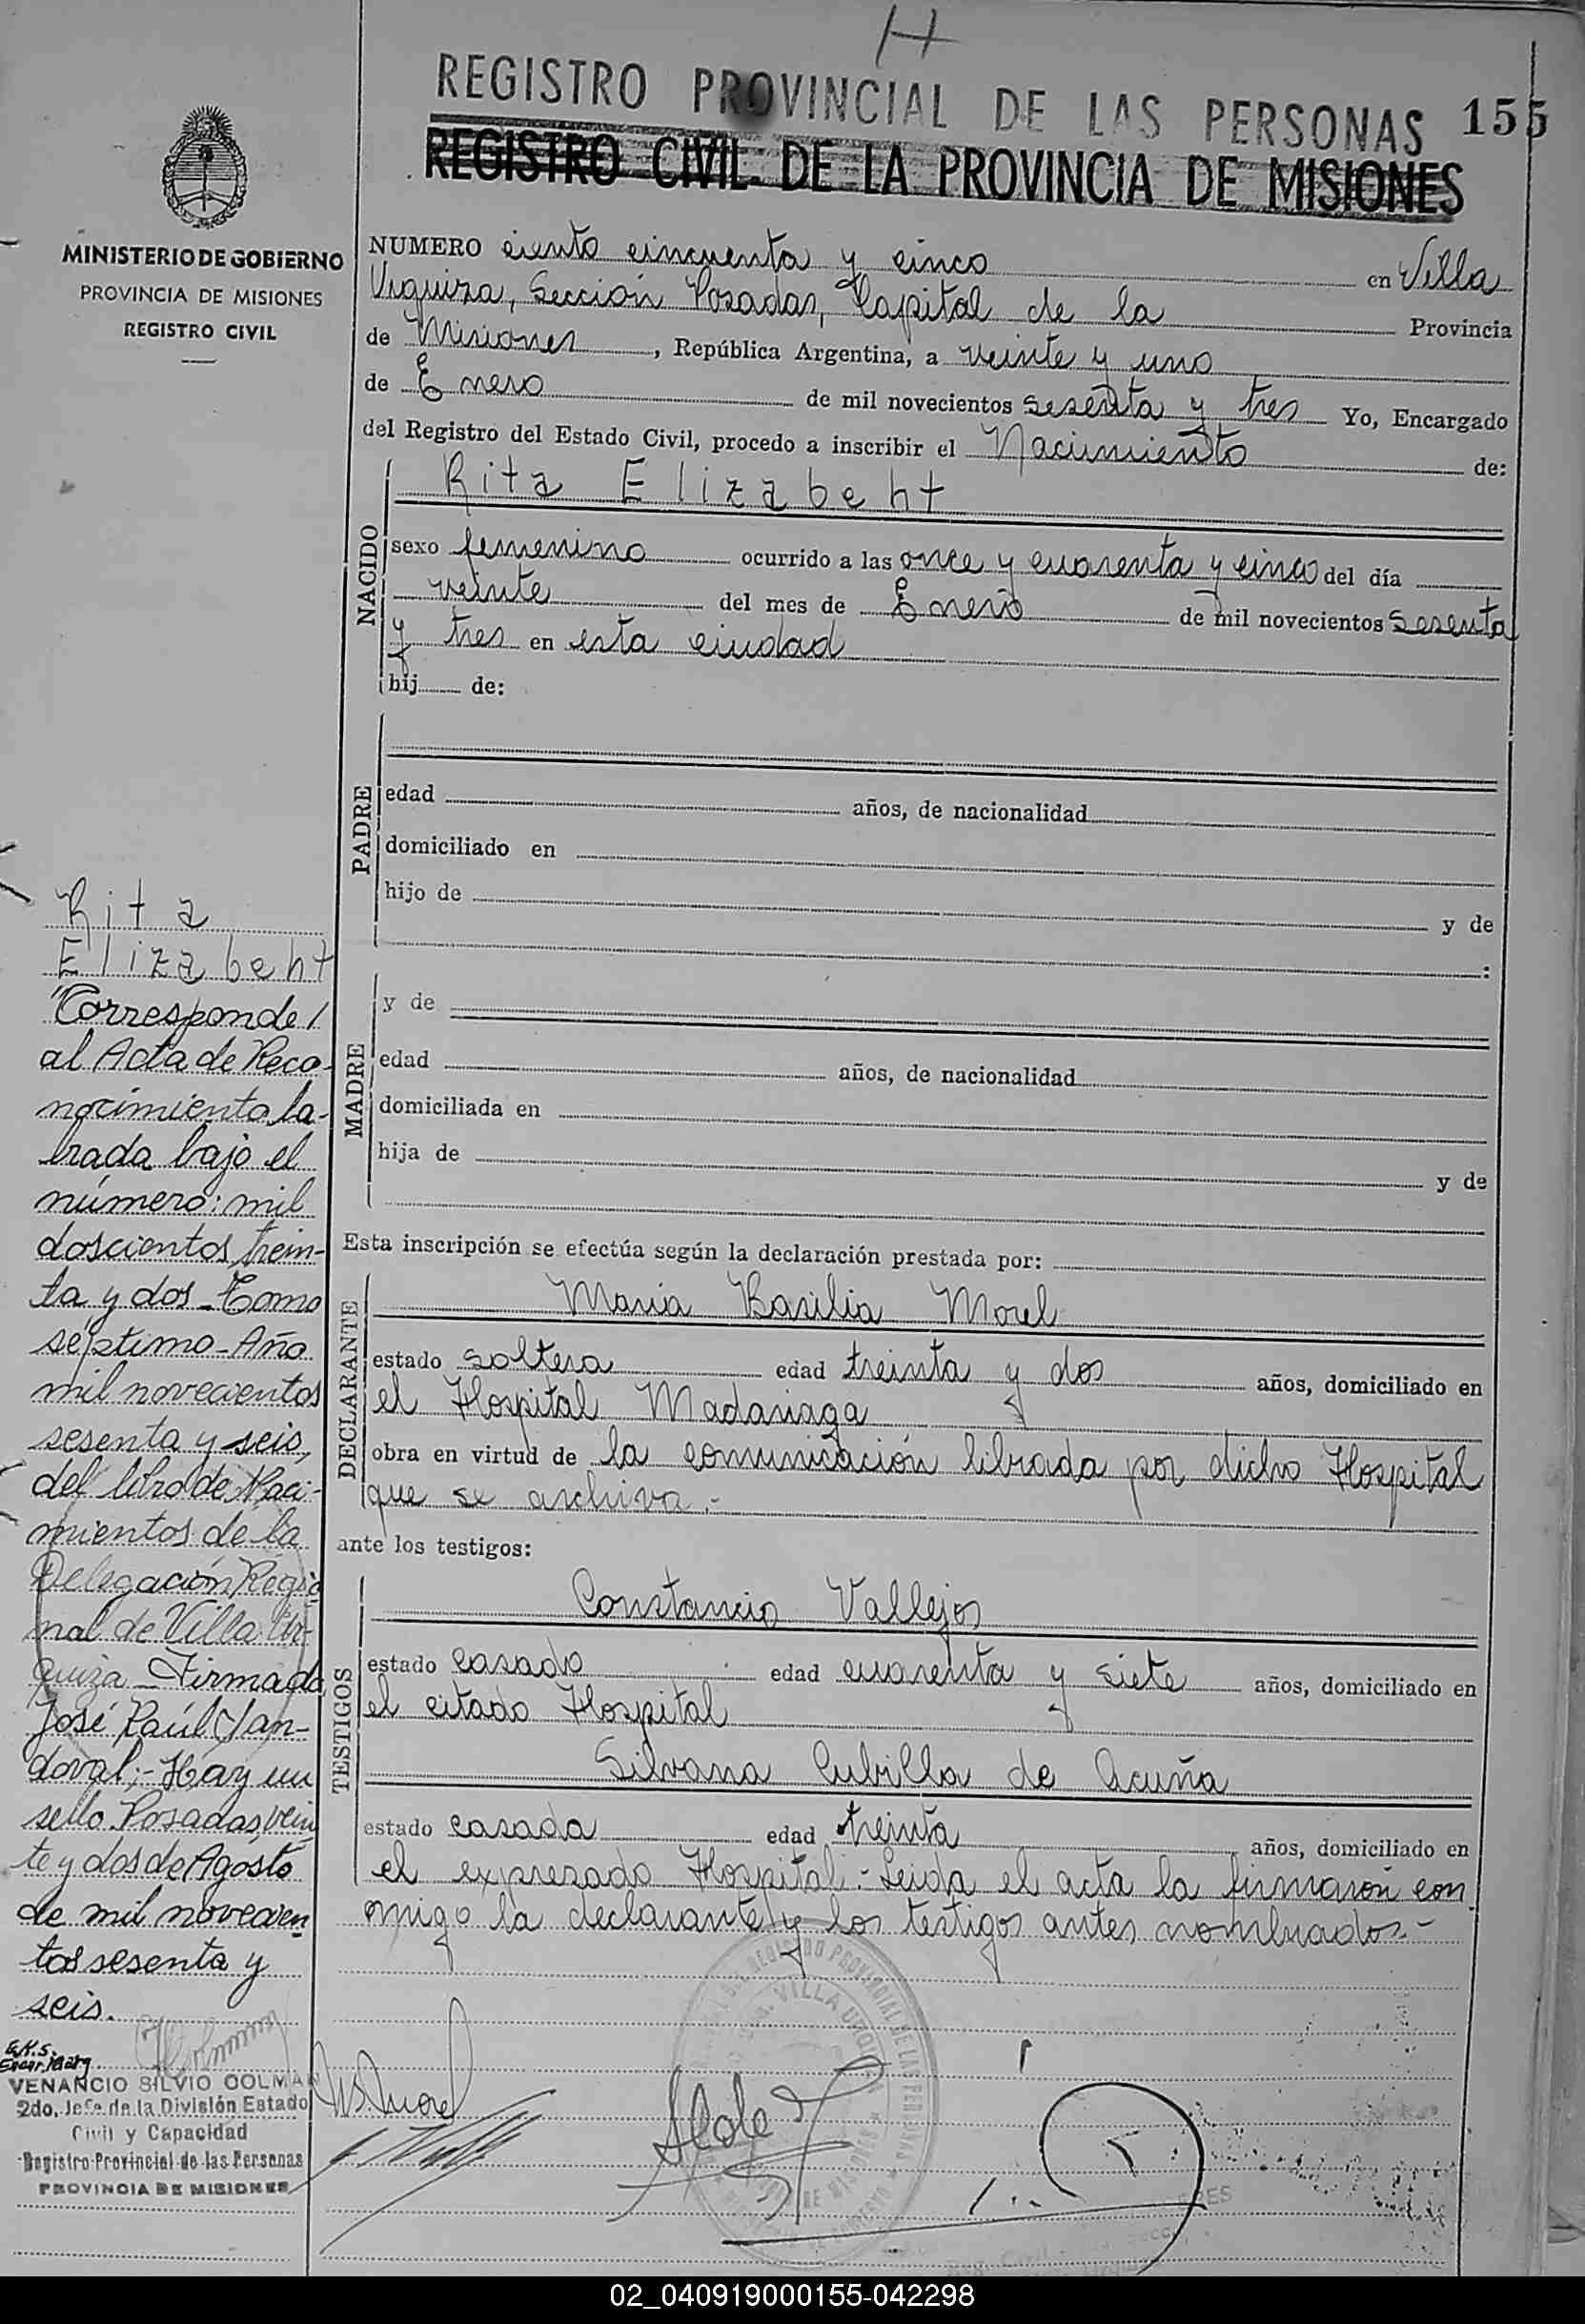 H
REGISTRO PROVINCIAL DE LAS PERSONAS
155
REGISTRO CIVIL DE LA PROVINCIA DE MISIONES
MINISTERIO DE GOBIERNO
PROVINCIA DE MISIONES
REGISTRO CIVIL
NUMERO ciento cincuenta y cinco en Villa
Urquiza, Sección Posadas, Capital de la Provincia
de Misiones, República Argentina, a veinte y uno
de Enero de mil novecientos sesenta y tres Yo, Encargado
del Registro del Estado Civil, procedo a inscribir el Nacimiento de:
NACIDO
Rita Elizabeht
sexo femenino ocurrido a las once y cuarenta y cinco del día
veinte del mes de Enero de mil novecientos sesenta
y tres en esta ciudad
hij de:
PADRE
edad años, de nacionalidad
domiciliado en
hijo de y de
:
MADRE
y de
edad años, de nacionalidad
domiciliada en
hija de y de
Esta inscripción se efectúa según la declaración prestada por:
DECLARANTE
Maria Basilia Morel
estado soltera edad treinta y dos años, domiciliado en
el Hospital Madariaga
obra en virtud de la comunicación librada por dicho Hospital
que se archiva.-
ante los testigos:
TESTIGOS
Constancio Vallejos
estado casado edad cuarenta y siete años, domiciliado en
el citado Hospital
Silvana Cubilla de Acuña
estado casada edad treinta años, domiciliado en
el expresado Hospital.- Leida el acta la firmaron con
migo la declarante y los testigos antes nombrados.-
Rita
Elizabeht
"Corresponde/
al Acta de Reco-
nocimiento la-
brada bajo el
número: mil
doscientos trein-
ta y dos - Tomo
séptimo - Año
mil novecientos
sesenta y seis,
del libro de Naci-
mientos de la
Delegación Regio
nal de Villa Ur-
quiza - Firmado
José Raúl San-
doval;- Hay un
sello Posadas, vein
te y dos de Agosto
de mil novecien
tos sesenta y
seis.
G.K.S.
Encar. Marg.
VENANCIO SILVIO COLMAN
2do. Jefe de la División Estado
Civil y Capacidad
Registro Provincial de las Personas
PROVINCIA DE MISIONES
B. Morel
02_040919000155-042298